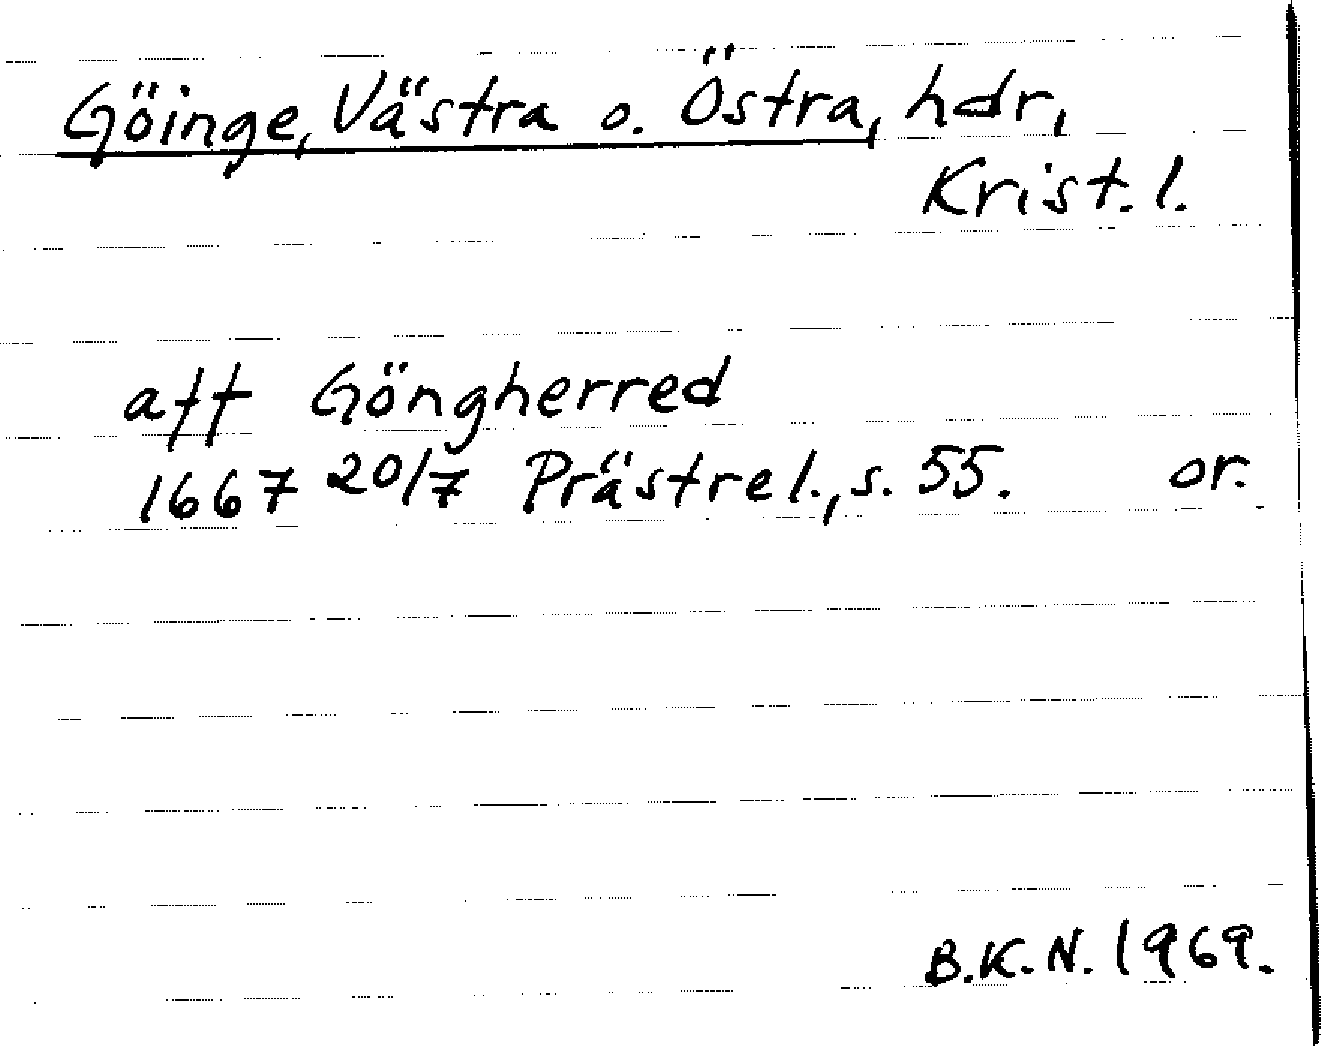 Göinge, Västra o. Östra, hdr,
Krist. l.
aff Göngherred
1667 20/7 Prästrel., s. 55. or.
B.K.N. 1969.